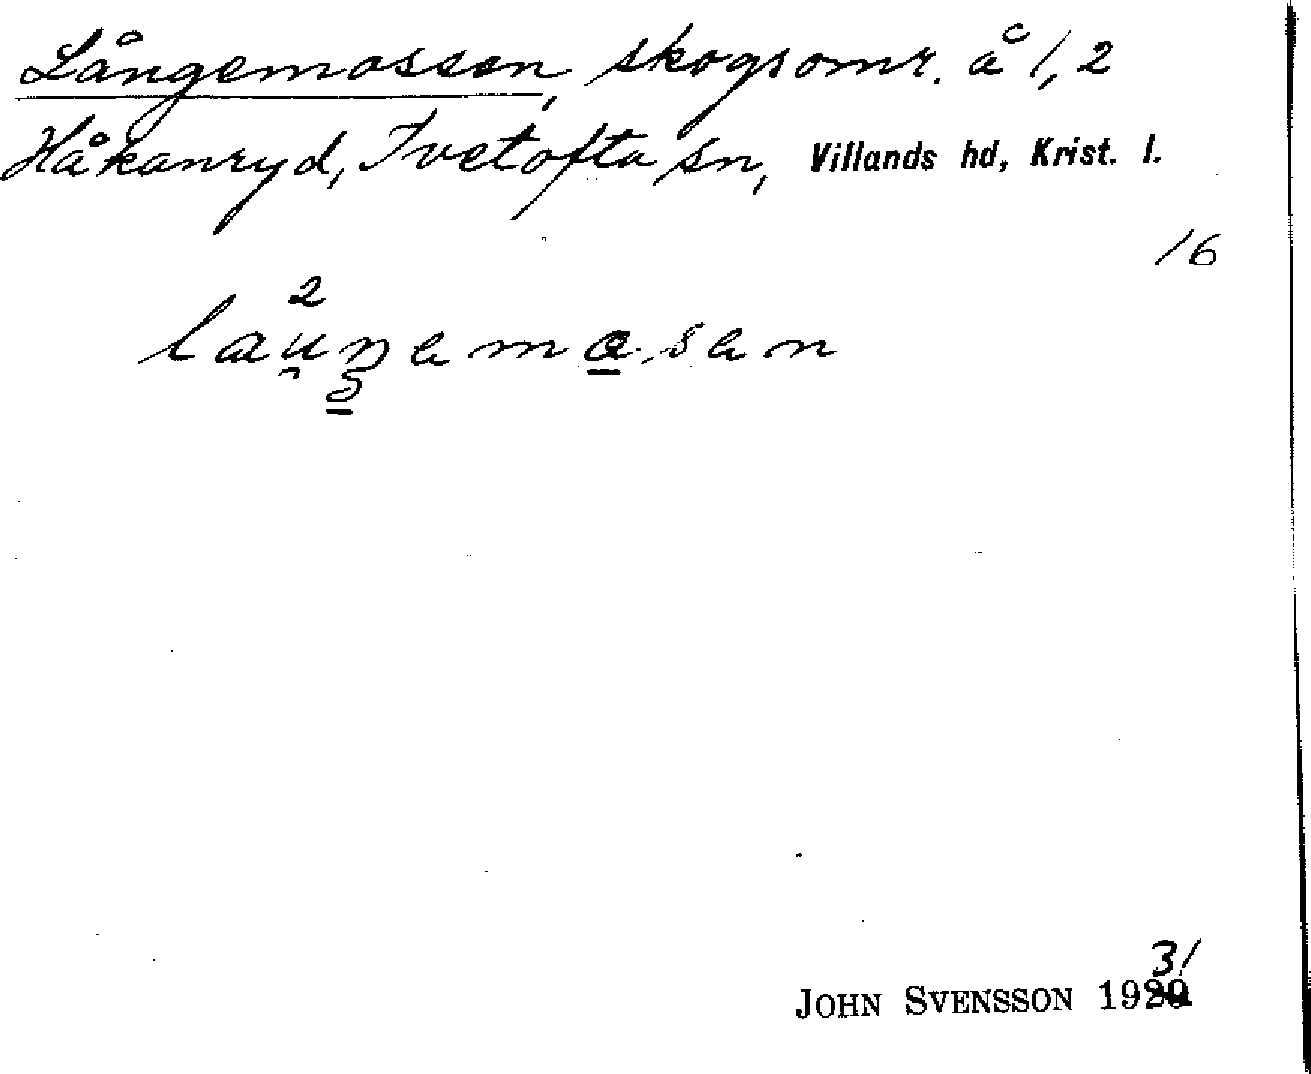 Långemossen, skogsomr. å 1, 2
Håkanryd, Ivetofta sn, Villands hd, Krist. l.
16
JOHN SVENSSON 1931